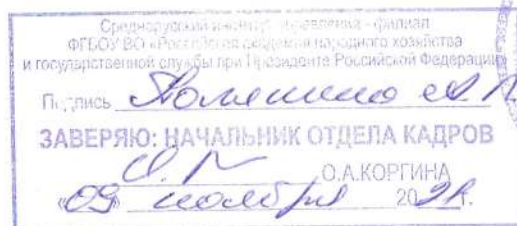 Среднерусский институт управления - филиал
ФГБОУ ВО «Российская академия народного хозяйства
и государственной службы при Президенте Российской Федерации»
Подпись
ЗАВЕРЯЮ: НАЧАЛЬНИК ОТДЕЛА КАДРОВ
О.А.КОРГИНА
«09» ноября 2021г.